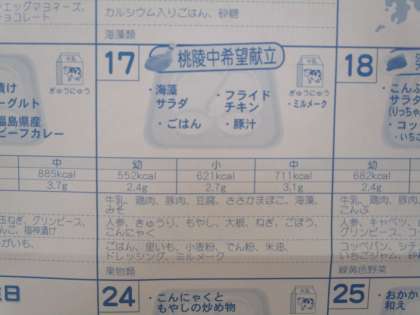 エッグマヨネーズ、
チョコレート
カルシウム入りごはん、砂糖
海藻類
17 桃陵中希望献立
18
ぎゅうにゅう
ぎゅうにゅう
・海藻
サラダ
・フライド
チキン
・ミルメーク
・ごはん
・豚汁
漬け
ーグルト
福島県産
ビーフカレー
・こんぶ
サラダ
(りっちゃ
・コッ
・いちご
中
幼
小
中
幼
885kcal
552kcal
621kcal
711kcal
682kcal
3.7g
2.4g
2.7g
3.1g
2.4g
牛乳、鶏肉、豚肉、豆腐、ささかまぼこ、海藻、
みそ
人参、きゅうり、もやし、大根、ねぎ、ごぼう、
こんにゃく
ごはん、里いも、小麦粉、でん粉、米油、
ドレッシング、ミルメーク
果物類
玉ねぎ、グリンピース、
ん、福神漬け
がいも、
牛乳、鶏肉、豚
こんぶ
人参、キャベツ、
グリンピース、コ
コッペパン、シチ
いちごジャム、砂
緑黄色野菜
24
・こんにゃくと
もやしの炒め物
25
・おかか
和え